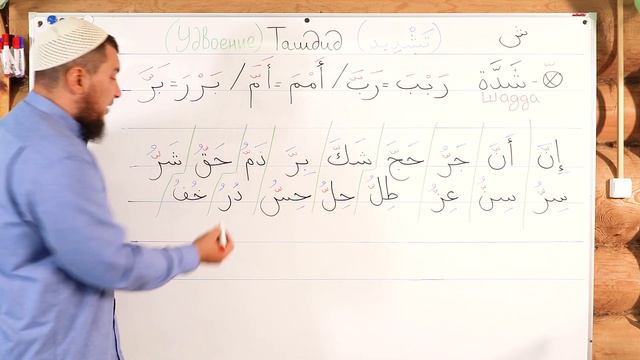 (Удвоение) Ташдид (تَشْدِيد) ش
شَدَّة - رَبْبَ = رَبَّ / أَمْمَ = أَمَّ / بَرْرَ = بَرَّ
шадда
إِنَّ أَنَّ جَرُّ حَجَّ شَكَّ بِرَّ دَمُّ حَقُّ شَرُّ
سِرُّ سِنُّ عِرُّ طِلُّ حِلُّ حِسُّ دُرُّ خُفُّ